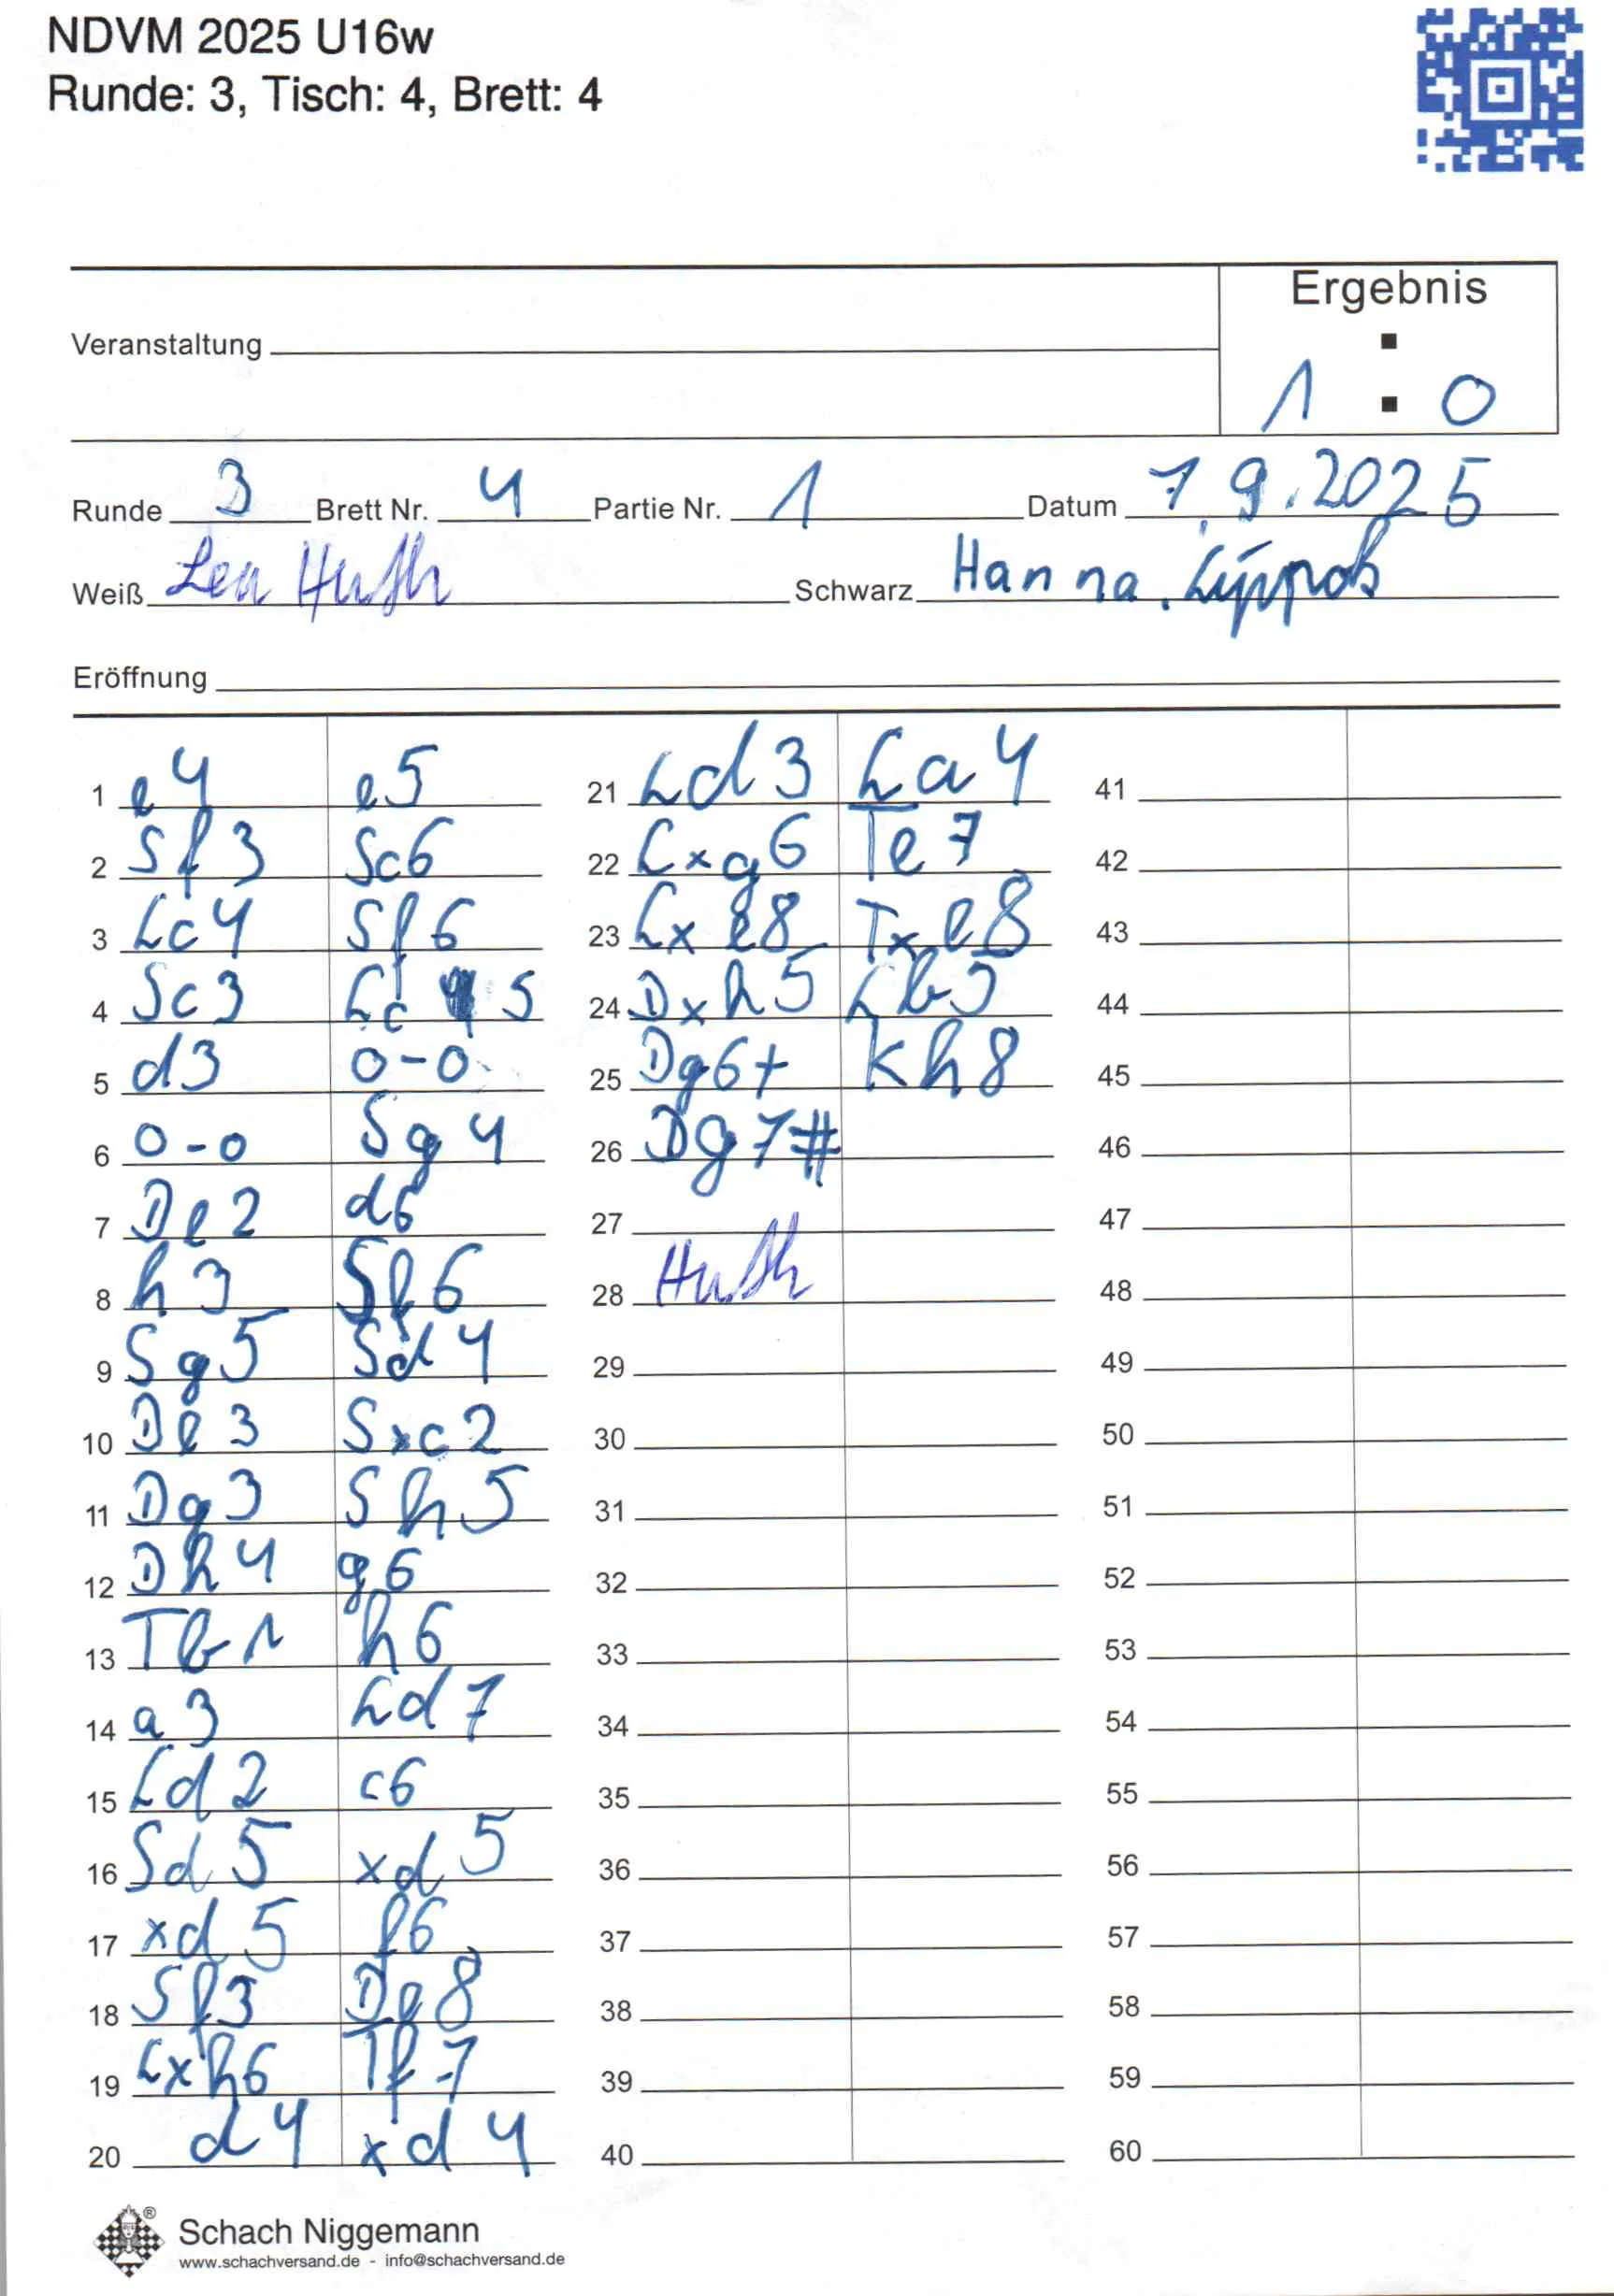 NDVM 2025 U16w
Runde: 3, Tisch: 4, Brett: 4
Ergebnis
Veranstaltung
1 : 0
Runde 3 Brett Nr. 4 Partie Nr. 1 Datum 7.9.2025
Weiß Lea Huth Schwarz Hanna
Eröffnung
1 e4 e5
2 Sf3 Sc6
3 Lc4 Sf6
4 Sc3 Lc 5
5 d3 0-0
6 0-0 Sg4
7 De2 d6
8 h3 Sf6
9 Sg5 Sd4
10 De3 Sxc2
11 Dg3 Sh5
12 Dh4 g6
13 Tb1 h6
14 a3 Ld7
15 Ld2 c6
16 Sd5 xd5
17 xd5 f6
18 Sf3 De8
19 Lxh6 Tf7
20 d4 xd4
21 Ld3 La4
22 Lxg6 Te7
23 Lxe8 Txe8
24 Dxh5 Lb5
25 Dg6+ Kh8
26 Dg7#
27
28 Huth
29
30
31
32
33
34
35
36
37
38
39
40
41
42
43
44
45
46
47
48
49
50
51
52
53
54
55
56
57
58
59
60
Schach Niggemann
www.schachversand.de - info@schachversand.de